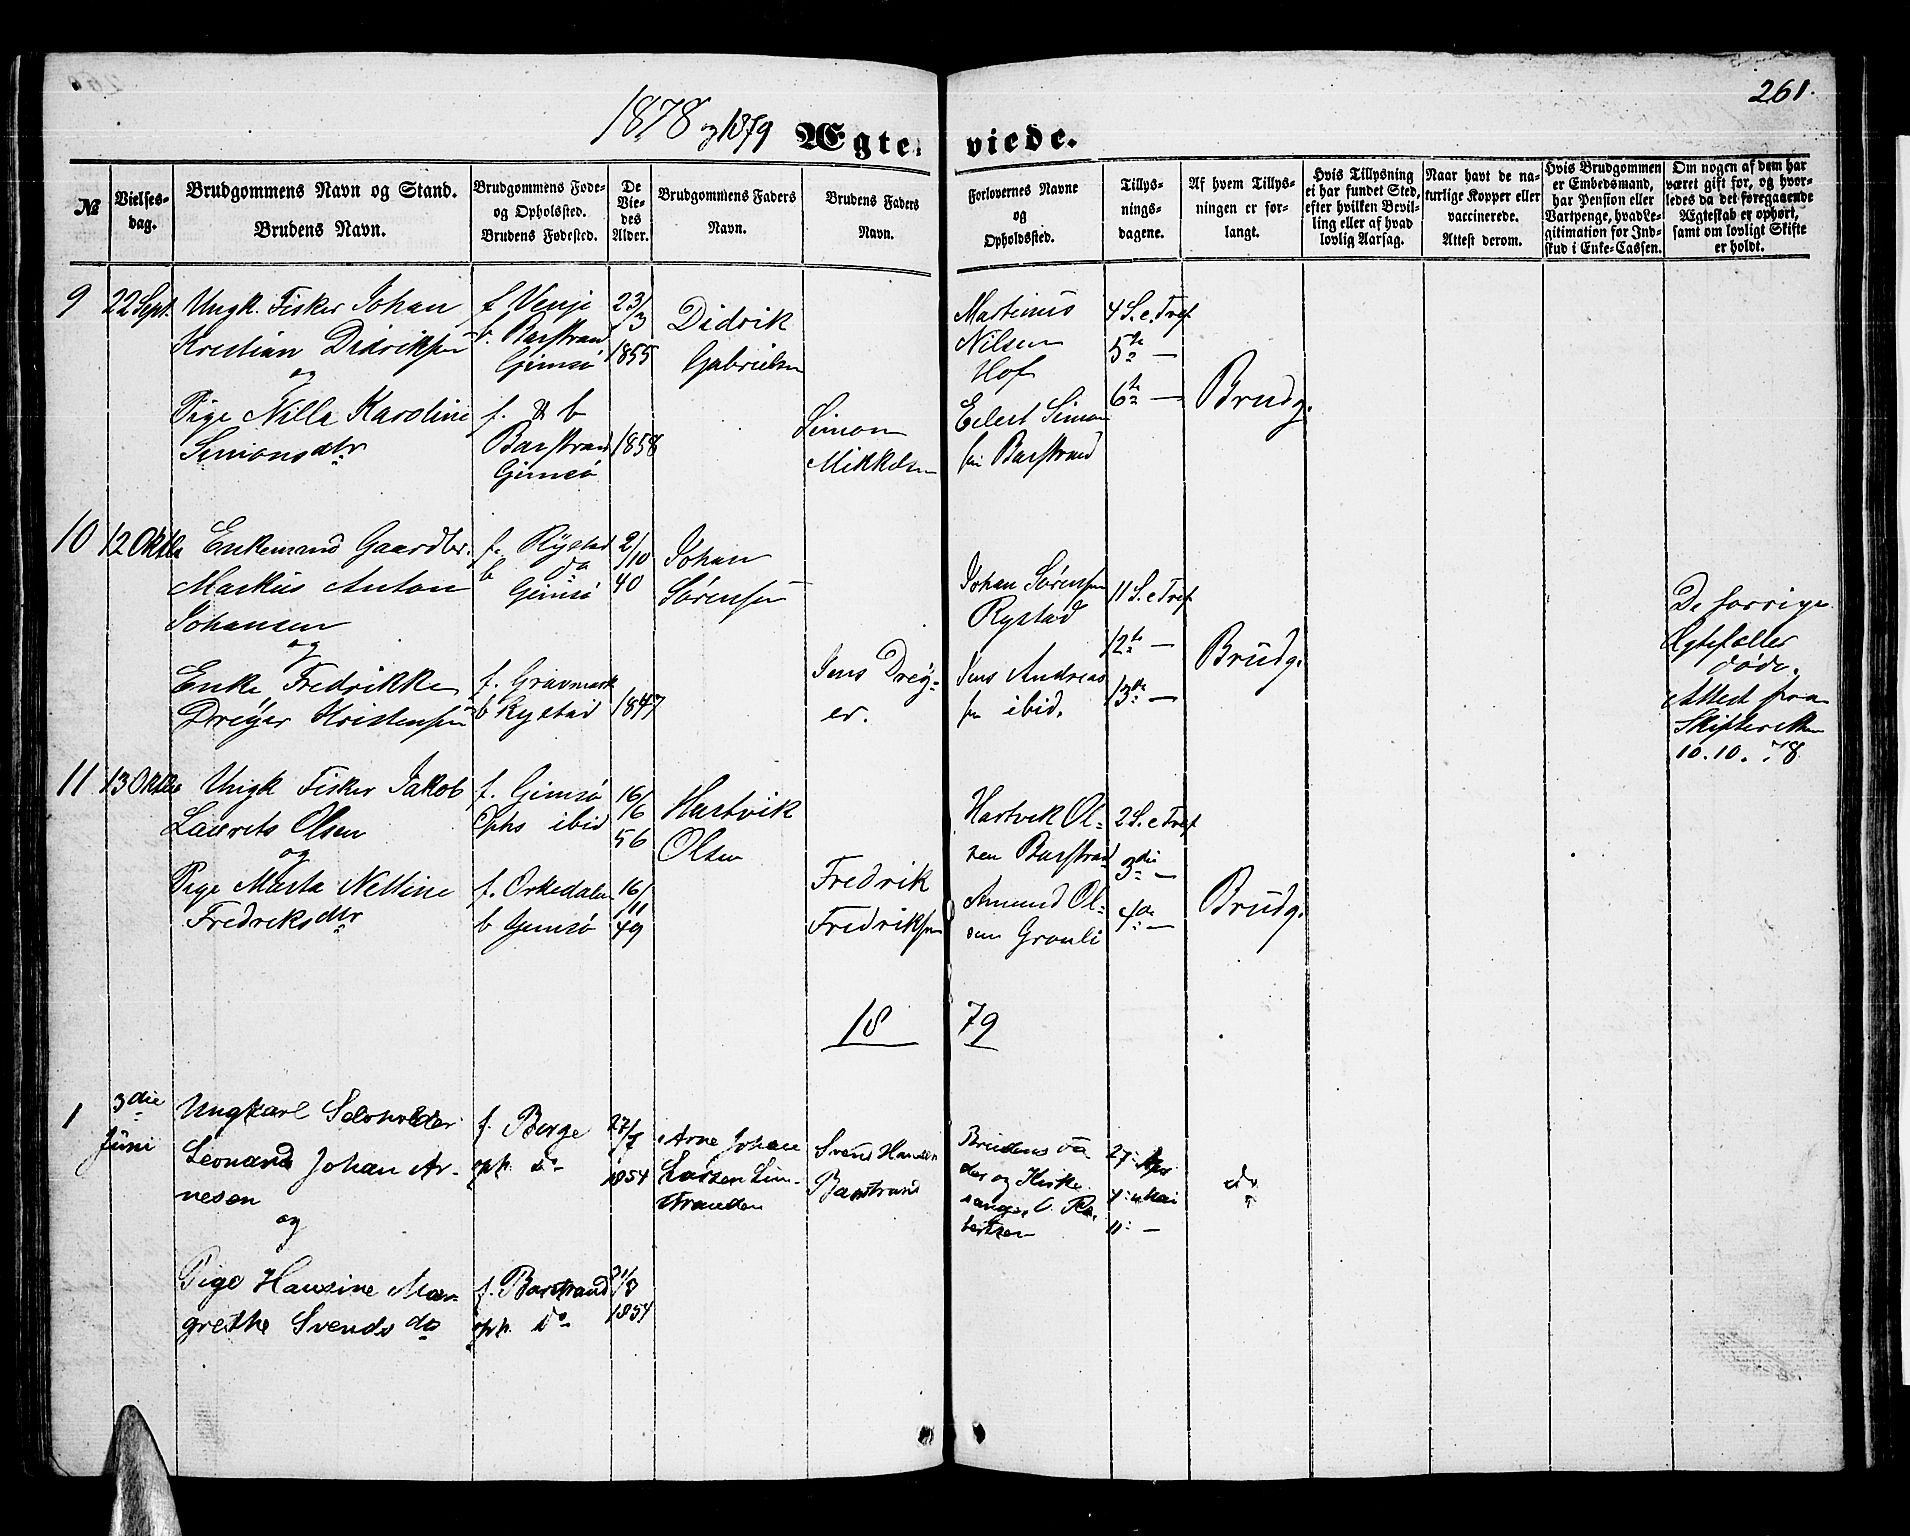 261.
1878 og 1879
Ægteviede.
№
Vielses-
dag.
Brudgommens Navn og Stand.
Brudens Navn.
Brudgommens Føde-
og Opholdssted.
Brudens Fødested.
De
Vie-
des
Alder.
Brudgommens Faders
Navn.
Brudens Faders
Navn.
Forlovernes Navne
og
Opholdssted.
Tillys-
nings-
dagene.
Af hvem Tillys-
ningen er for-
langt.
Hvis Tillysning
ei har fundet Sted,
efter hvilken Bevil-
ling eller af hvad
lovlig Aarsag.
Naar havt de na-
turlige Kopper eller
vaccinerede.
Attest derom.
Hvis Brudgommen
er Embedsmand,
har Pension eller
Vartpenge, hvad Le-
gitimation for Ind-
skud i Enke-Cassen.
Om nogen af dem har
været gift før, og hvor-
ledes da det foregaaende
Ægteskab er ophørt,
samt om lovligt Skifte
er holdt.
9
22 Sept.
Ungk. Fisker Johan
Kristian Didriksen
og
Pige Nilla Karoline
Simonsdtr
f. Venje
b. Barstrand
Gimsø
f. & b
Barstrand
Gimsø
23/3
1855
1858
Didrik
Gabrielsen
Simon
Mikkelsen
Martinus
Nilsen
Hof
Eilert Simon
sen Barstrand
4 S. e. Tref
5te —
6te —
Brudg.
10
12 Oktbr
Enkemand Gaardbr.
Markus Anton
Johansen
og
Enke Fredrikke
Dreyer Kristensen
f. Rystad
b do
Gimsø
f. Gravmark
b Rystad
2/10
40
1847
Johan
Sørensen
Jens Drey-
er.
Johan Sørensen
Rystad
Jens Andreas
sen ibid.
11 S. e Tref
12te —
13de —
Brudg.
De forrige
Ægtefæller
døde.
Attest fra
Skifteretten
10.10.78
11
13 Oktbr
Ungk Fisker Jakob
Laurits Olsen
og
Pige Marta Nelline
Fredriksdtr
f. Gimsø
Ophs ibid
f. Orkedalen
b Gimsø
16/6
56
16/11
49
Hartvik
Olsen
Fredrik
Fredriksen
Hartvik Ol-
sen Barstrand
Amund Ol-
sen Granli
2 S. e Tref
3die —
4de —
Brudg.
1879
1
3die
Juni
Ungkarl Selvholder
Leonard Johan Ar-
nesen
og
Pige Hansine Mar-
grethe Svendsda
f. Berge
oph. do
f. Barstrand
oph. do
27/7
1854
1854
Arne Johan
Larsen Lim-
stranden
Svend Hansen
Barstrand
Brudens Fa
der og Kirke
sanger
bertsen
27. Apr
4. Mai
11. —
do